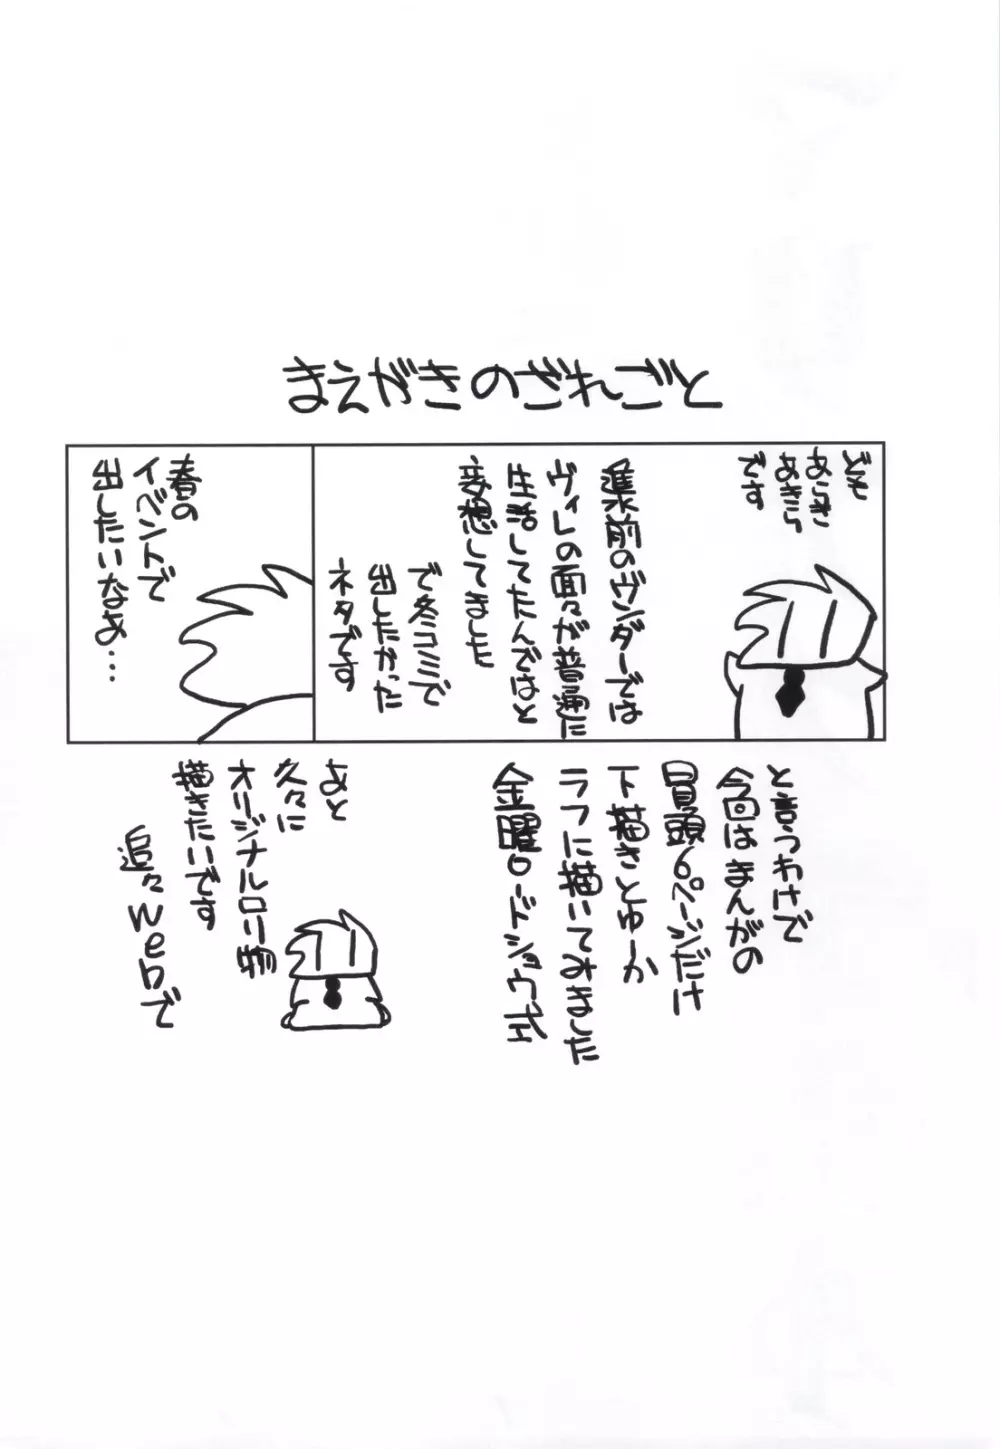 まえがきのざれごと
ども
あらき
あきら
です
準前のヴンダーでは
ヴィレの面々が普通に
生活してたんではと
妄想してました
で冬コミで
出したかった
ネタです
春の
イベントで
出したいなあ…
と言うわけで
今回はまんがの
冒頭6ページだけ
下描きとゆーか
ラフに描いてみました
金曜ロードショウ式
あと
久々に
オリジナルロリ物
描きたいです
追々Webで